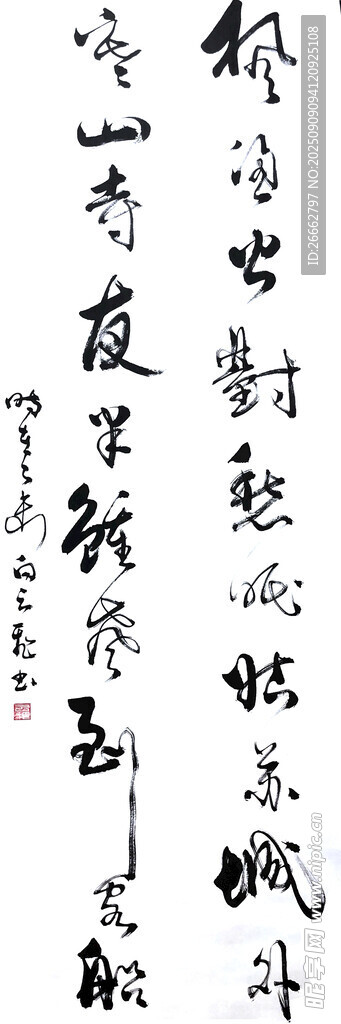 枫渔火對愁眠姑苏城外
寒山寺夜半鍾聲到客船
時在 白云 书
ID:26662797 NO:20250909094120925108
昵享网 www.nipic.cn